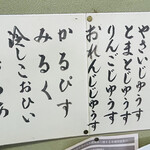 やさいじゅうす
とまとじゅうす
りんごじゅうす
おれんじじゅうす
かるぴす
みるく
冷しこおひい